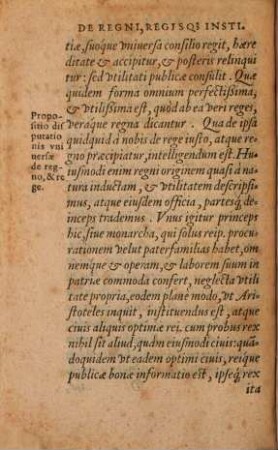 DE REGNI, REGISQ3 INSTI.
tiæ, suoque vniuersa consilio regit, hære
ditate & accipitur, & posteris relinqui
tur: sed vtilitati publicæ consulit. Quæ
quidem forma omnium perfectissima,
& vtilissima est, quòd ab ea veri reges,
Propo-
sitio dis
putatio
nis vni
uersæ
de reg-
no, & re
ge.
veraque regna dicantur. Qua de ipsa
quidquid à nobis de rege iusto, atque re-
gno præcipiatur, intelligendum est. Hu-
iusmodi enim regni originem quasi à na
tura inductam, & vtilitatem descripsi-
mus, atque eiusdem officia, partesq́ue
deinceps trademus. Vnus igitur princeps
hic, siue monarcha, qui solus reip. procu-
rationem velut paterfamilias habet, om
nemque & operam, & laborem suum in
patriæ commoda confert, neglecta vtili
tate propria, eodem planè modo, vt Ari-
stoteles inquit, instituendus est, atque
ciuis aliquis optimæ rei. cum probus rex
nihil sit aliud, quàm eiusmodi ciuis: quā
doquidem vt eadem optimi ciuis, reique
publicæ bonæ informatio est, ipseq́ rex
ita